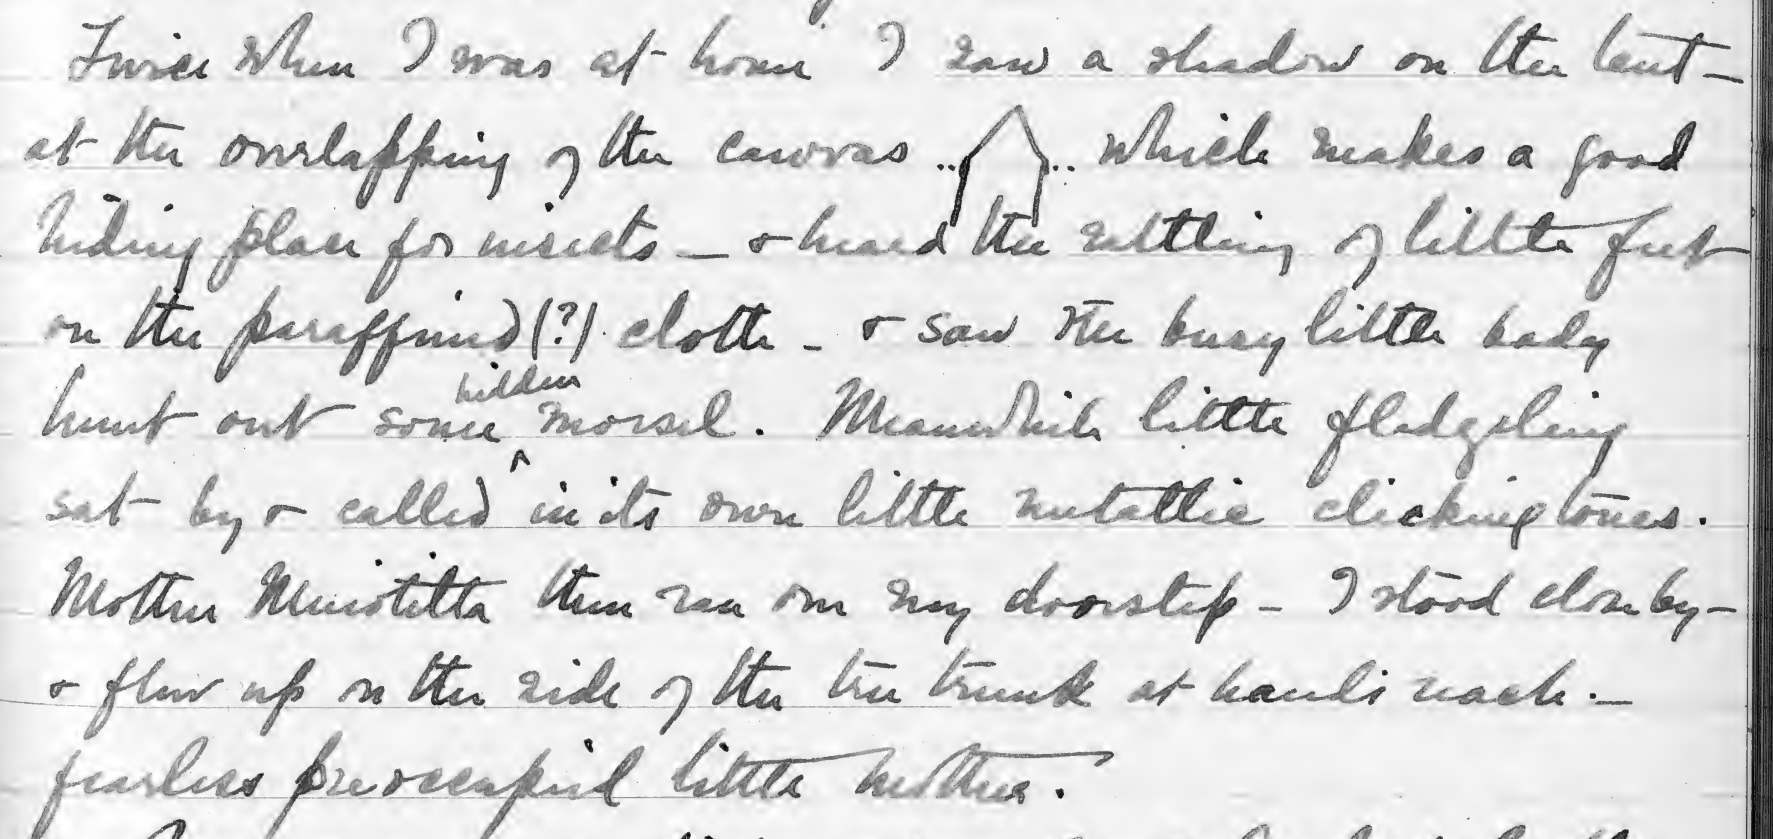 Twice when I was at home I saw a shadow on the tent —
at the overlapping of the canvas .. .. which makes a good
hiding place for insects — & heard the rattling of little feet
on the paraffined (?) cloth — & saw the busy little body
hunt out some hidden morsel. Meanwhile little fledgeling
sat by & called in its own little metallic clicking tones.
Mother Mniotilta then ran on my doorstep — I stood close by —
& flew up on the side of the tree trunk at hand's reach. —
fearless preoccupied little mother.